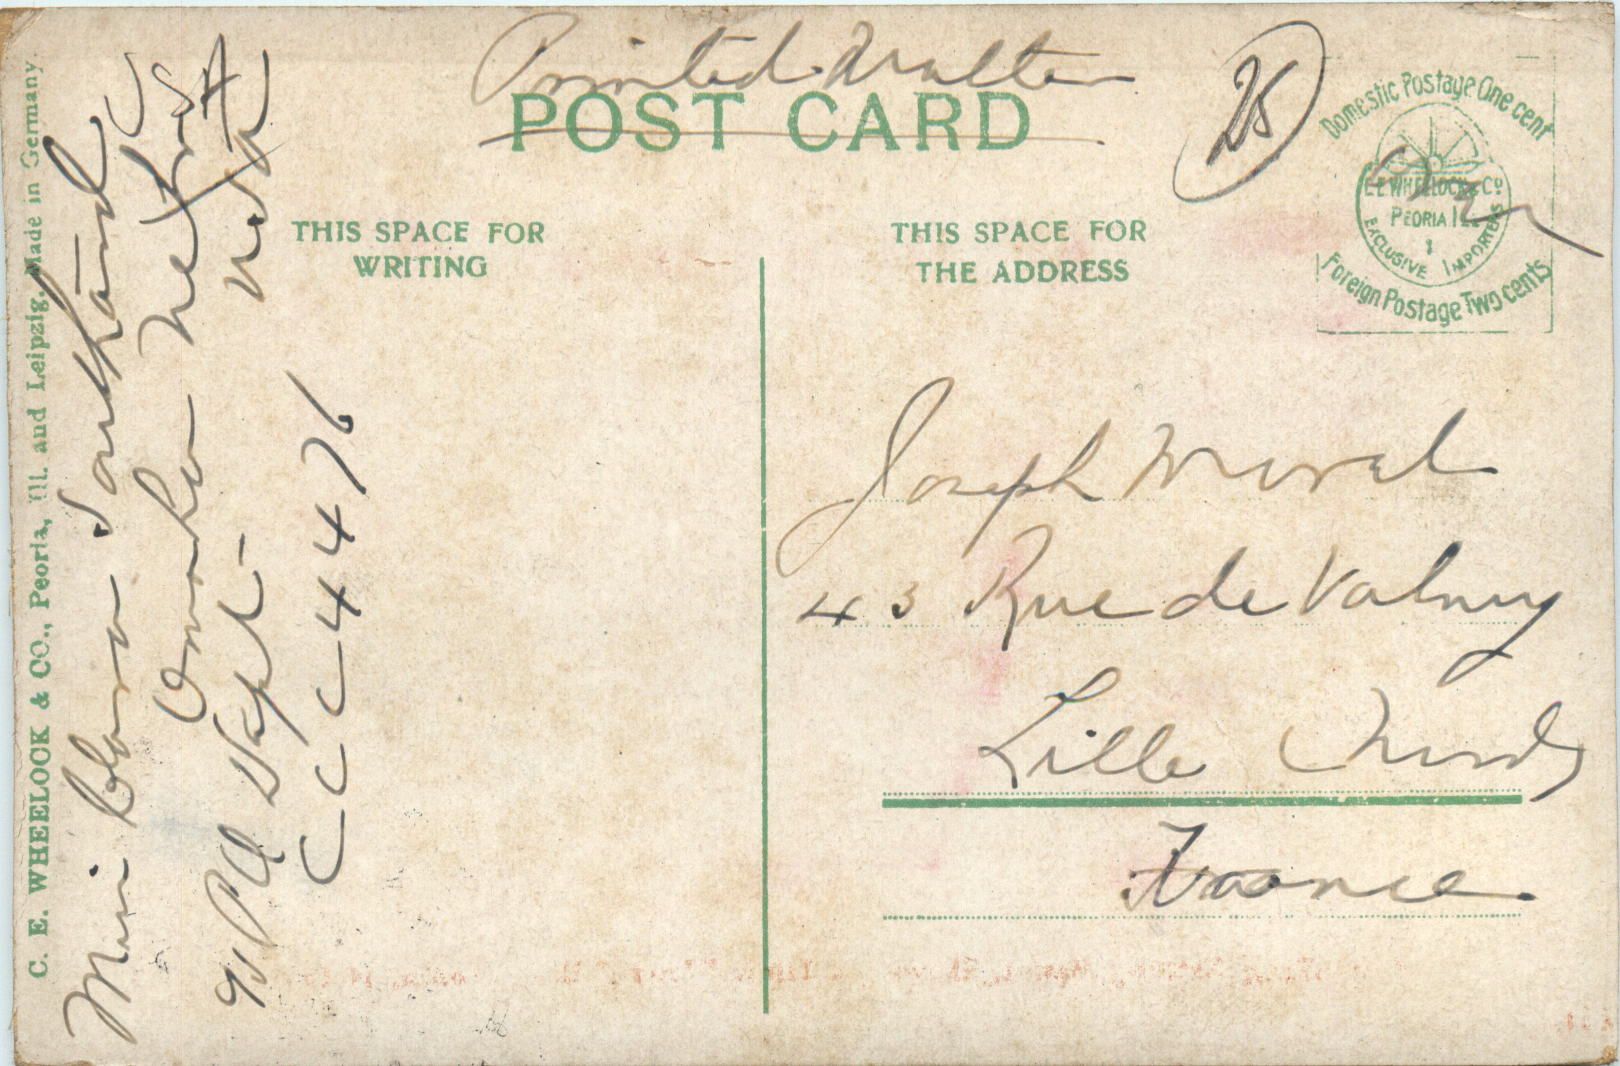 Printed Matter
POST CARD
25
Domestic Postage One cent
C.E. WHEELOCK & Co
PEORIA ILL
EXCLUSIVE IMPORTERS
Foreign Postage Two cents
THIS SPACE FOR
WRITING
THIS SPACE FOR
THE ADDRESS
C. E. WHEELOCK & CO., Peoria, Ill. and Leipzig, Made in Germany
Southard
Omaha Nebras
U.S.A
Dept-
C C C 4 4 76
Joseph
43 Rue de Valmy
Lille (Nord)
France